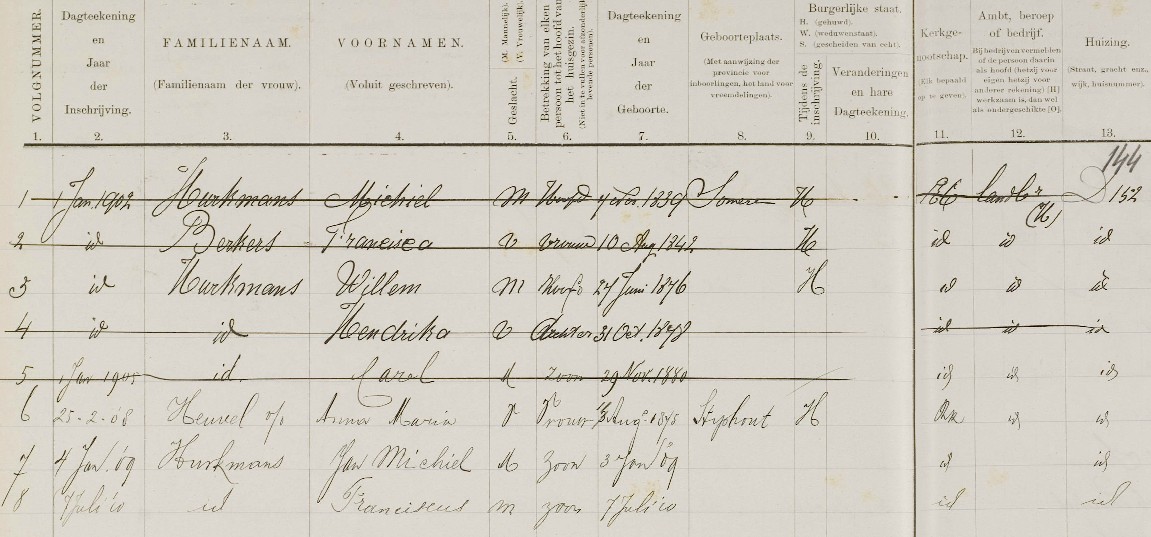 VOLGNUMMER.
Dagteekening
en
Jaar
der
Inschrijving.
FAMILIENAAM.
(Familienaam der vrouw).
VOORNAMEN.
(Voluit geschreven).
Geslacht.
(M. Mannelijk).
(V. Vrouwelijk).
Betrekking van elken
persoon tot het hoofd van
het huisgezin.
(Niet in te vullen voor afzonderlijk
levende personen).
Dagteekening
en
Jaar
der
Geboorte.
Geboorteplaats.
(Met aanwijzing der
provincie voor
inboorlingen, het land voor
vreemdelingen).
Burgerlijke staat.
H. (gehuwd).
W. (weduwenstaat).
S. (gescheiden van echt).
Tijdens de
inschrijving.
Veranderingen
en hare
Dagteekening.
Kerkge-
nootschap.
(Elk bepaald
op te geven).
Ambt, beroep
of bedrijf.
Bij bedrijven vermelden
of de persoon daarin
als hoofd (hetzij voor
eigen hetzij voor
anderer rekening) [H]
werkzaam is, dan wel
als ondergeschikte [O].
Huizing.
(Straat, gracht enz.,
wijk, huisnummer).
1. 2. 3. 4. 5. 6. 7. 8. 9. 10. 11. 12. 13.
144
1 1 Jan. 1902 Hurkmans Michiel M Hoofd 1839 Someren H RK landbr D 152
(H)
2 id Berkers Francisca V Vrouw 10 Aug. 1842 H id id id
3 id Hurkmans Willem M Hoofd 27 Juni 1876 H id id id
4 id id Hendrika V Dochter 31 Oct. 1878 id id id
5 1 Jan id. Carel M Zoon 29 Nov. 1880 id id id
6 25-2-'08 Heuvel v/d Anna Maria V Vrouw Aug. 1878 Stiphout H RK id id
7 4 Jan. '09 Hurkmans Jan Michiel M Zoon 3 Jan '09 id id
8 7 Juli '10 id Franciscus M zoon 7 Juli '10 id id